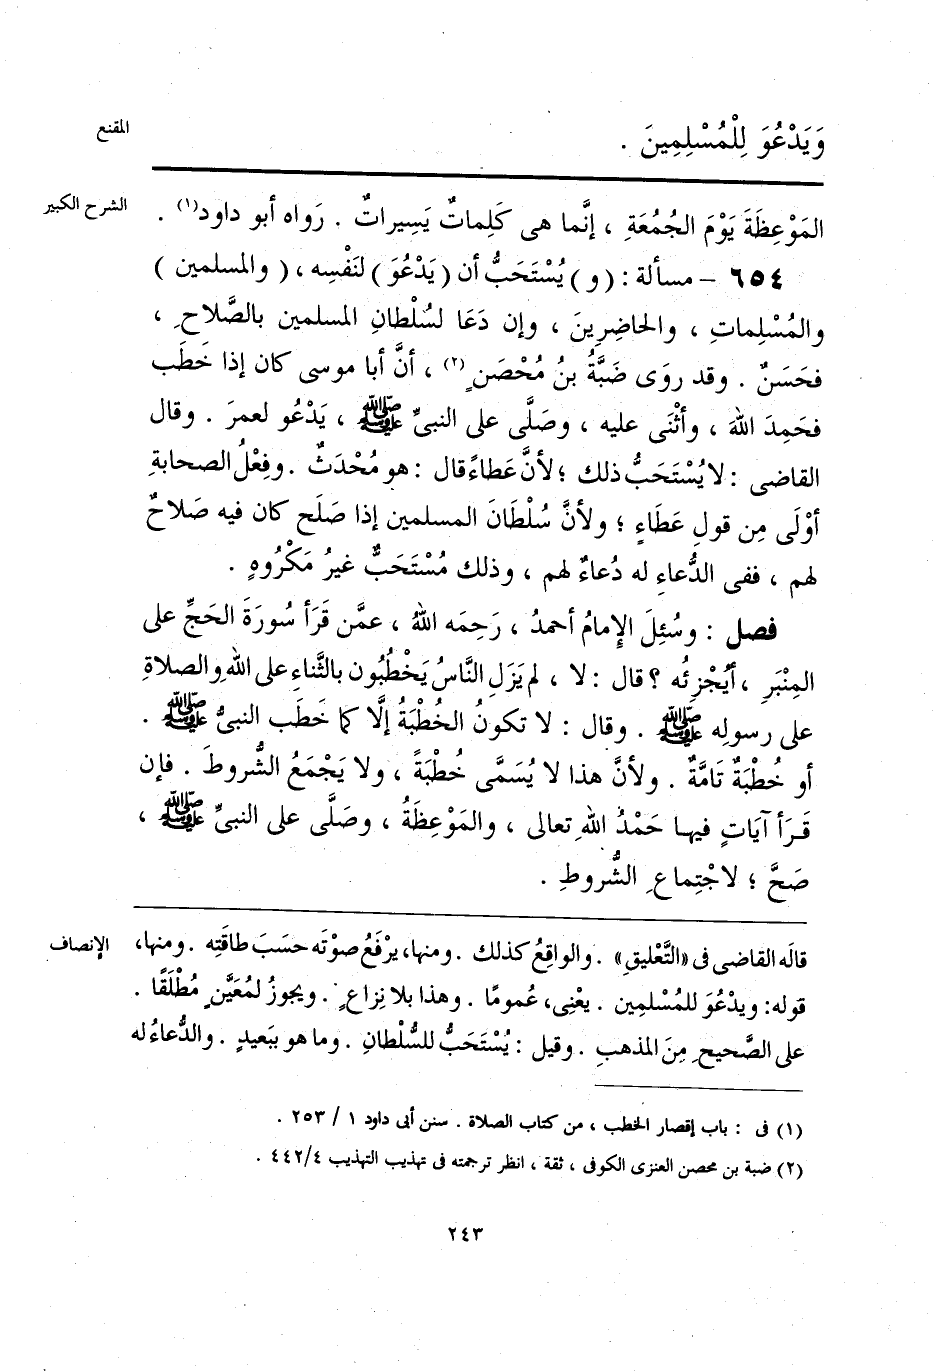 المقنع
وَيَدْعُوَ لِلْمُسْلِمِينَ .
الشرح الكبير
المَوْعِظَةَ يَوْمَ الجُمُعَةِ ، إنَّما هى كَلِماتٌ يَسِيراتٌ . رَواه أبو داود(١) .
٦٥٤ – مسألة : ( و ) يُسْتَحَبُّ أن ( يَدْعُوَ ) لنَفْسِه ، ( والمسلمين )
والمُسْلِماتِ ، والحاضِرِينَ ، وإن دَعَا لسُلْطانِ المسلمين بالصَّلاحِ ،
فحَسَنٌ . وقد روَى ضَبَّةُ بنُ مُحْصَنٍ(٢) ، أنَّ أبا موسى كان إذا خَطَب
فحَمِدَ اللهَ ، وأثْنَى عليه ، وصَلَّى على النبىِّ ﷺ ، يَدْعُو لعمرَ . وقال
القاضى : لا يُسْتَحَبُّ ذلك ؛ لأنَّ عَطاءً قال : هو مُحْدَثٌ . وفِعْلُ الصحابةِ
أوْلَى مِن قولِ عَطَاءٍ ؛ ولأنَّ سُلْطَانَ المسلمين إذا صَلَح كان فيه صَلاحٌ
لهم ، ففى الدُّعاءِ له دُعاءٌ لهم ، وذلك مُسْتَحَبٌّ غيرُ مَكْرُوهٍ .
فصل : وسُئِلَ الإِمامُ أحمدُ ، رَحِمَه اللهُ ، عمَّن قَرَأ سُورَةَ الحَجِّ على
المِنْبَرِ ، أيُجْزِئُه ؟ قال : لا ، لم يَزَلِ النَّاسُ يَخْطُبُون بالثَّناءِ على اللهِ والصلاةِ
على رسولِه ﷺ . وقال : لا تكونُ الخُطْبَةُ إلَّا كما خَطَب النبىُّ ﷺ .
أو خُطْبَةٌ تَامَّةٌ . ولأنَّ هذا لا يُسَمَّى خُطْبَةً ، ولا يَجْمَعُ الشُّروطَ . فإن
قَرَأ آيَاتٍ فيها حَمْدُ اللهِ تعالى ، والمَوْعِظَةُ ، وصَلَّى على النبىِّ ﷺ ،
صَحَّ ؛ لاجْتِماعِ الشُّروطِ .
الإنصاف
قالَه القاضى فى «التَّعْليقِ» . والواقِعُ كذلك . ومنها، يرْفَعُ صوْتَه حسَبَ طاقَتِه . ومنها،
قوله: ويدْعُوَ للمُسْلمِين . يعْنِى، عُمومًا . وهذا بلا نِزاعٍ . ويجوزُ لمُعَيَّنٍ مُطْلَقًا .
على الصَّحيحِ مِنَ المذهبِ . وقيل : يُسْتَحَبُّ للسُّلْطانِ . وما هو ببَعيدٍ . والدُّعاءُ له
(١) فى : باب إقصار الخطب ، من كتاب الصلاة . سنن أبى داود ١ / ٢٥٣ .
(٢) ضبة بن محصن العنزى الكوفى ، ثقة ، انظر ترجمته فى تهذيب التهذيب ٤٤٢/٤ .
٢٤٣